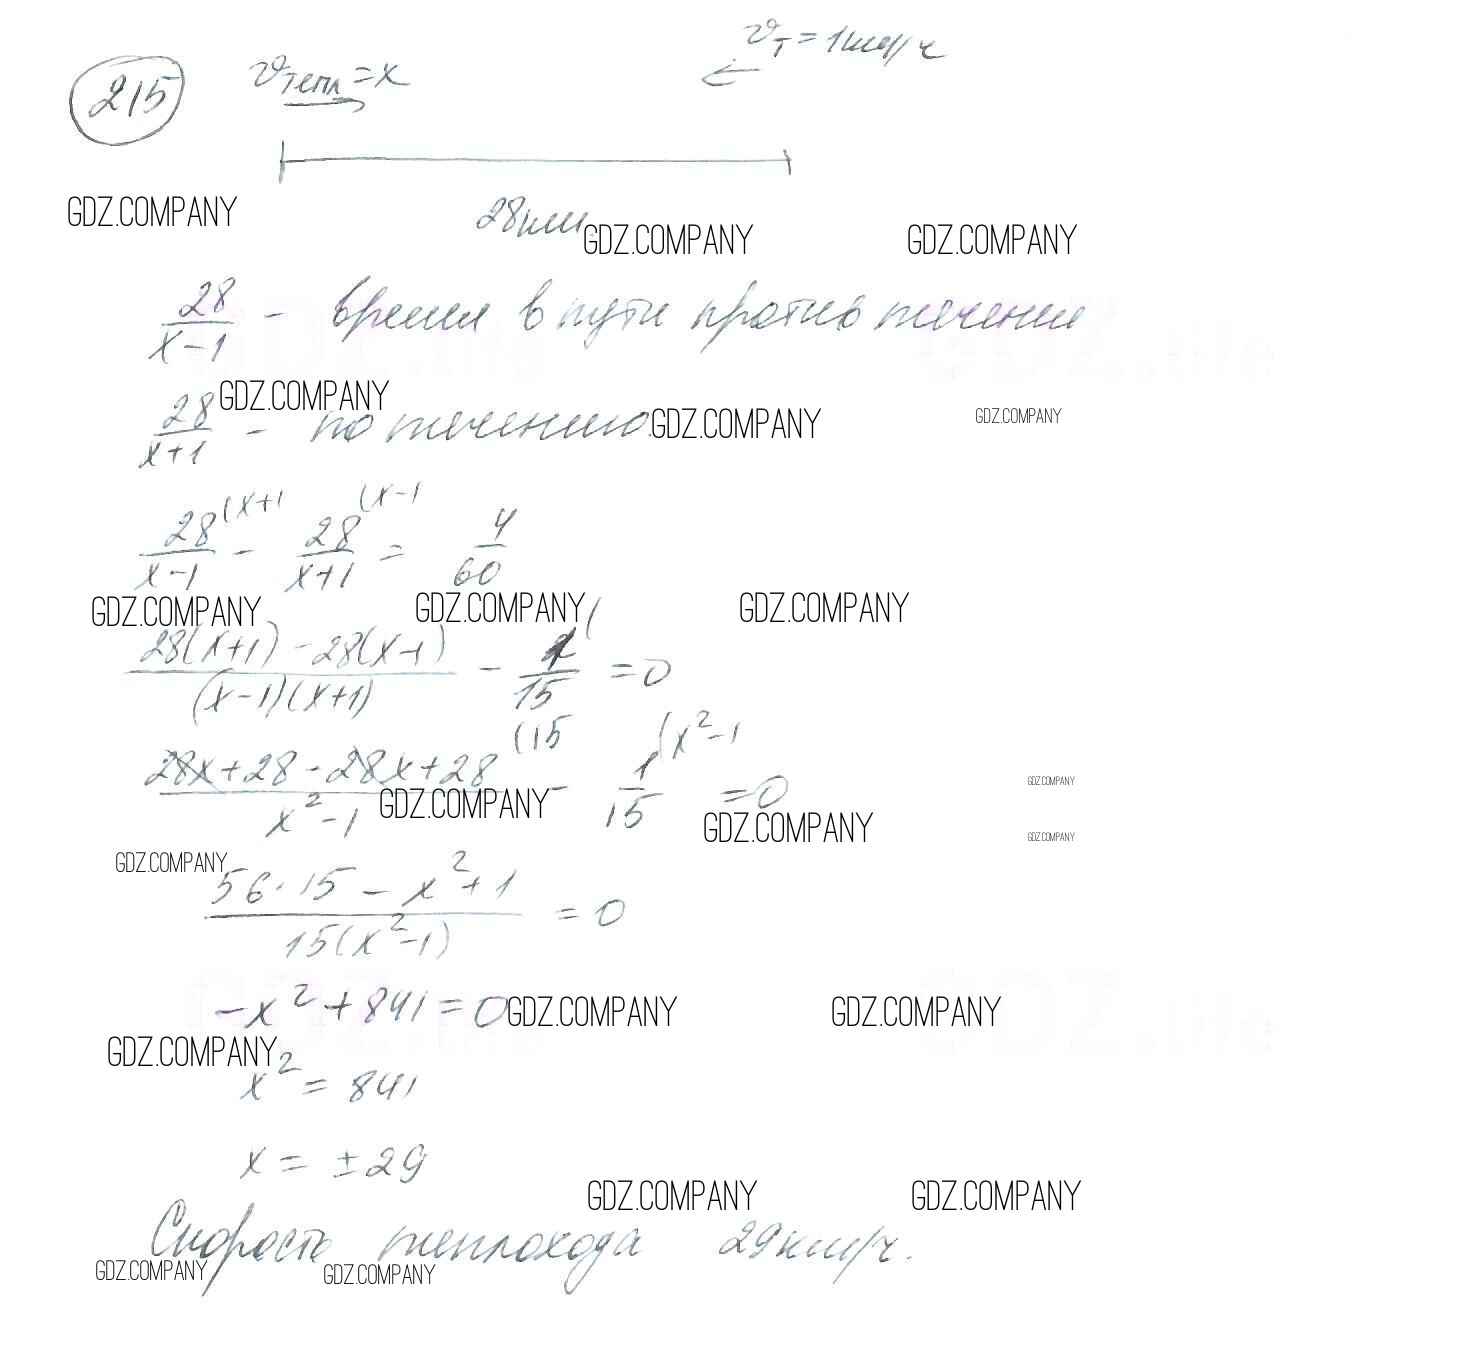 215
υтепл = x
υт = 1км/ч
28км
GDZ.COMPANY
GDZ.COMPANY GDZ.COMPANY
28/(x-1) - время в пути против течения
GDZ.COMPANY
28/(x+1) - по течению.
GDZ.COMPANY GDZ.COMPANY
28/(x-1) (x+1 - 28/(x+1) (x-1 = 4/60
GDZ.COMPANY GDZ.COMPANY GDZ.COMPANY
(28(x+1) - 28(x-1))/((x-1)(x+1)) - 1/15 = 0
(28x + 28 - 28x + 28)/(x² - 1) (15 - 1/15 (x²-1 = 0
GDZ.COMPANY GDZ.COMPANY
GDZ.COMPANY GDZ.COMPANY
GDZ.COMPANY
(56 · 15 - x² + 1)/(15(x²-1)) = 0
-x² + 841 = 0
GDZ.COMPANY GDZ.COMPANY
GDZ.COMPANY
x² = 841
x = ±29
GDZ.COMPANY GDZ.COMPANY
Скорость теплохода 29км/ч.
GDZ.COMPANY GDZ.COMPANY